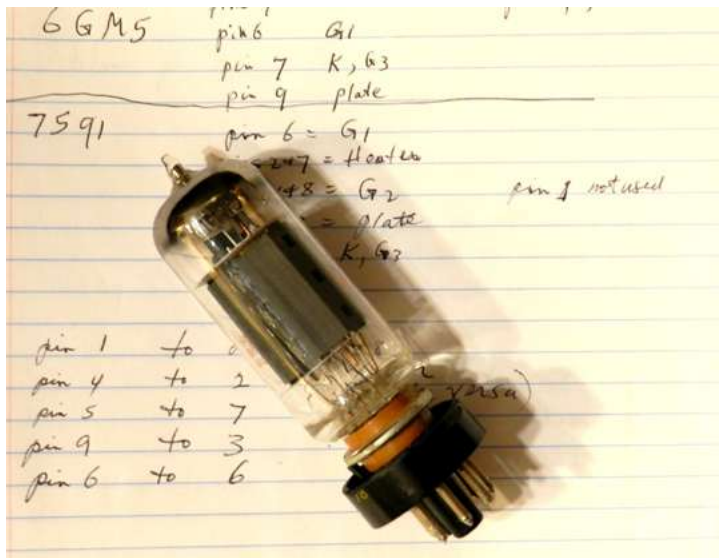 6GM5
pin 6 G1
pin 7 K, G3
pin 9 plate
7591
pin 6 = G1
2+7 = Heater
4+8 = G2 pin 1 not used
= plate
K, G3
pin 1 to
pin 4 to 2
pin 5 to 7
pin 9 to 3
pin 6 to 6